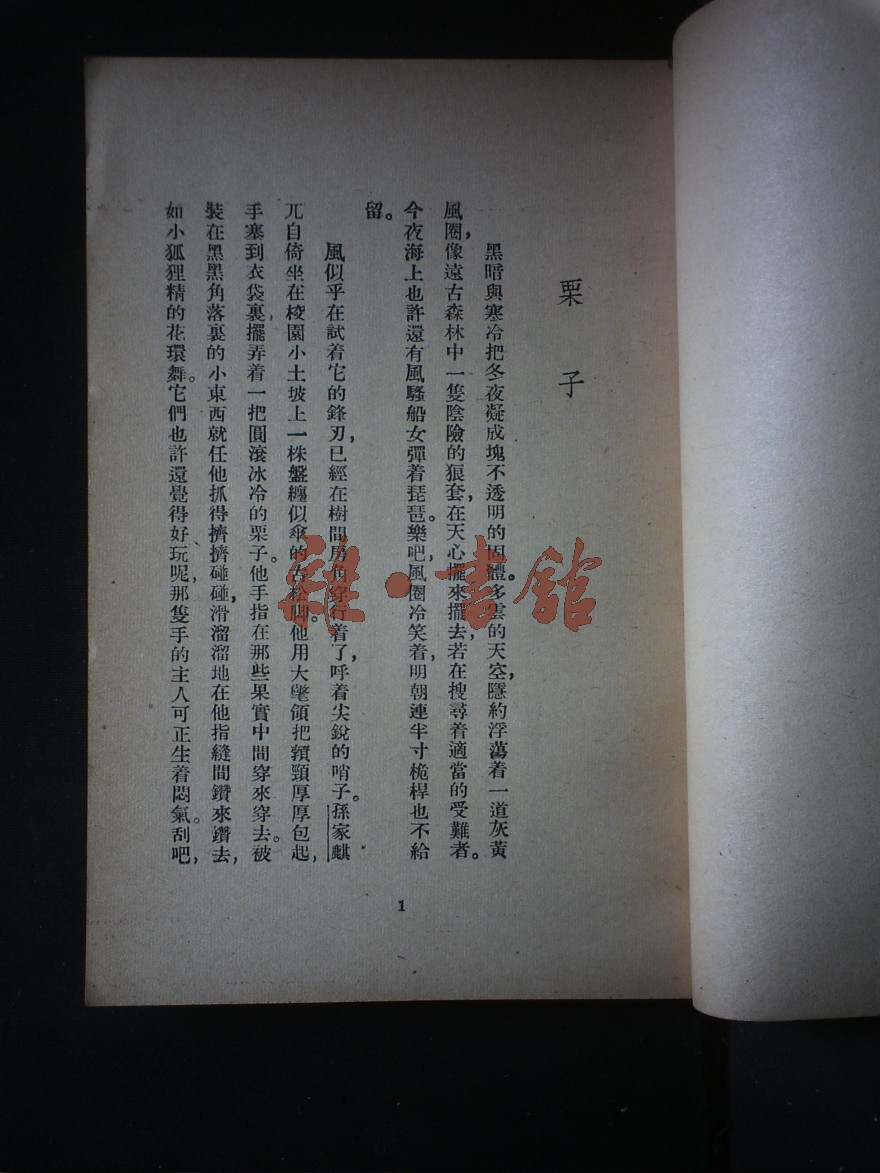 栗子
黑暗與寒冷把冬夜凝成塊不透明的固體。多雲的天空，隱約浮蕩着一道灰黃
風圈，像遠古森林中一隻陰險的狼套，在天心擺來擺去，若在搜尋着適當的受難者。
今夜海上也許還有風騷船女彈着琵琶。樂吧，風圈冷笑着，明朝連半寸桅桿也不給
留。
風似乎在試着它的鋒刃，已經在樹間房角穿行着了，呼着尖銳的哨子。孫家麒
兀自倚坐在校園小土坡上一株盤纏似傘的古松脚。他用大氅領把頸厚厚包起，
手塞到衣袋裏，擺弄着一把圓滾冰冷的栗子。他手指在那些果實中間穿來穿去。被
裝在黑黑角落裏的小東西就任他抓得擠擠碰碰，滑溜溜地在他指縫間鑽來鑽去，
如小狐狸精的花環舞。它們也許還覺得好玩呢，那隻手的主人可正生着悶氣。刮吧，
1
雜·書館